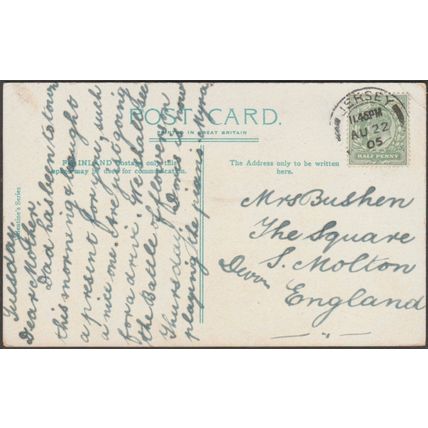 POST CARD.
PRINTED IN GREAT BRITAIN
FOR INLAND Postage only this
space may be used for communication.
The Address only to be written
here.
Valentine's Series
JERSEY
11.45PM
AU 22
05
HALF PENNY
Tuesday
Dear Mother
Dad has been to town
this morning & bought
a present for you, such
a nice one. Are just going
for a drive. Fetched
the Battle of Flowers on
Thursday.
playing the piano
Mrs Bushen
The Square
S. Molton
Devon
England